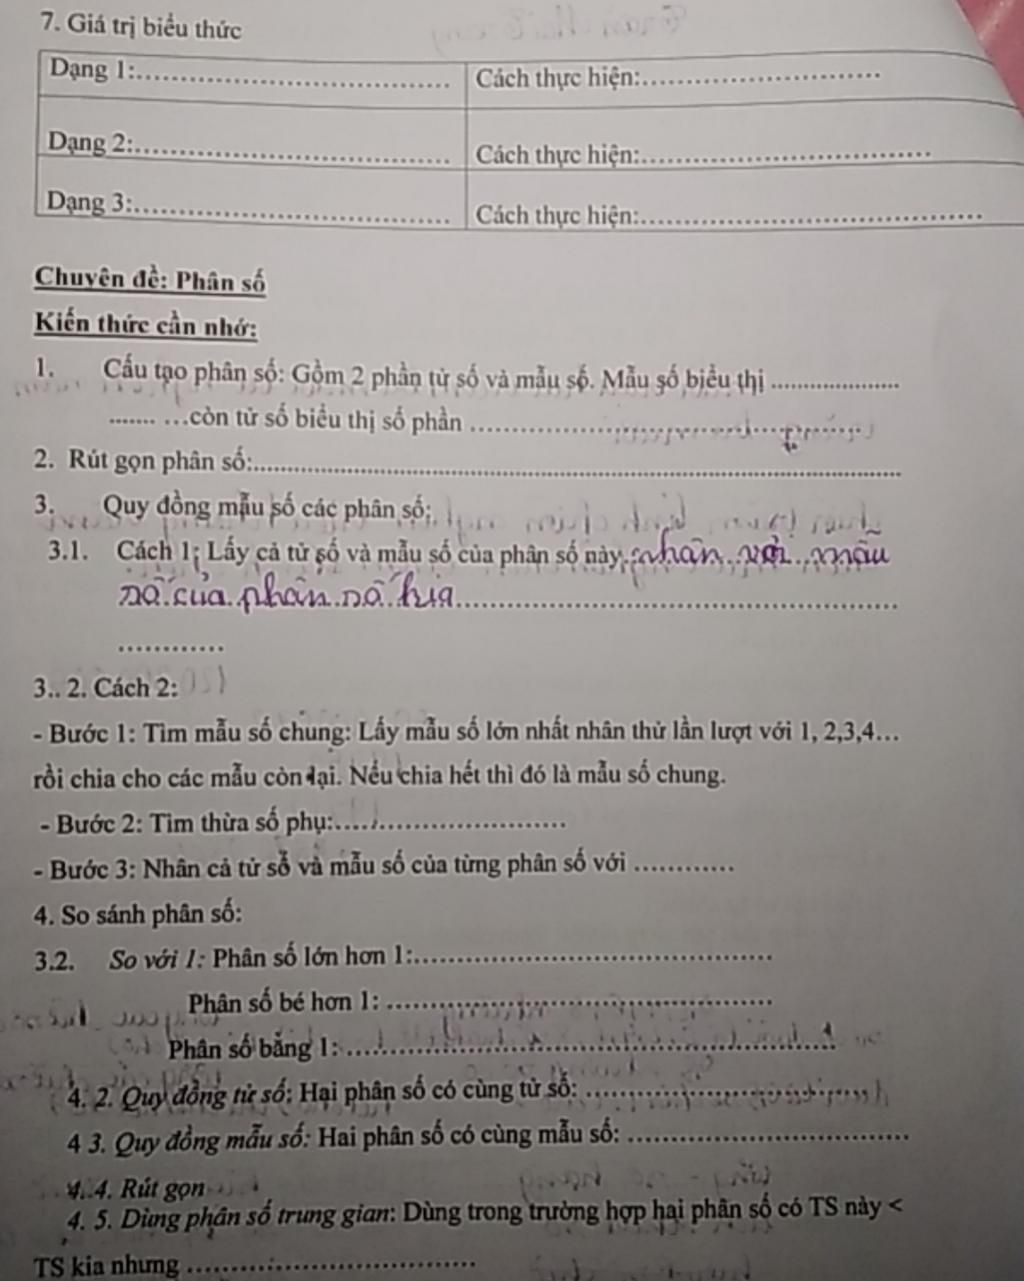 7. Giá trị biểu thức
Dạng 1:........................................ Cách thực hiện:..............................
Dạng 2:........................................ Cách thực hiện:.....................................
Dạng 3:........................................ Cách thực hiện:...........................................
Chuyên đề: Phân số
Kiến thức cần nhớ:
1. Cấu tạo phân số: Gồm 2 phần tử số và mẫu số. Mẫu số biểu thị ...................
....... ...còn tử số biểu thị số phần ..................................................
2. Rút gọn phân số:................................................................................
3. Quy đồng mẫu số các phân số:
3.1. Cách 1: Lấy cả tử số và mẫu số của phân số này nhân với mẫu
số của phân số kia........................................................
............
3.. 2. Cách 2:
- Bước 1: Tìm mẫu số chung: Lấy mẫu số lớn nhất nhân thử lần lượt với 1, 2,3,4...
rồi chia cho các mẫu còn lại. Nếu chia hết thì đó là mẫu số chung.
- Bước 2: Tìm thừa số phụ:.............................
- Bước 3: Nhân cả tử số và mẫu số của từng phân số với ............
4. So sánh phân số:
3.2. So với 1: Phân số lớn hơn 1:.............................................
Phân số bé hơn 1: ................................................
Phân số bằng 1: .............................................................
4. 2. Quy đồng tử số: Hai phân số có cùng tử số: ...............................
4 3. Quy đồng mẫu số: Hai phân số có cùng mẫu số: ...................................
4. 4. Rút gọn
4. 5. Dùng phân số trung gian: Dùng trong trường hợp hai phân số có TS này <
TS kia nhưng ....................................